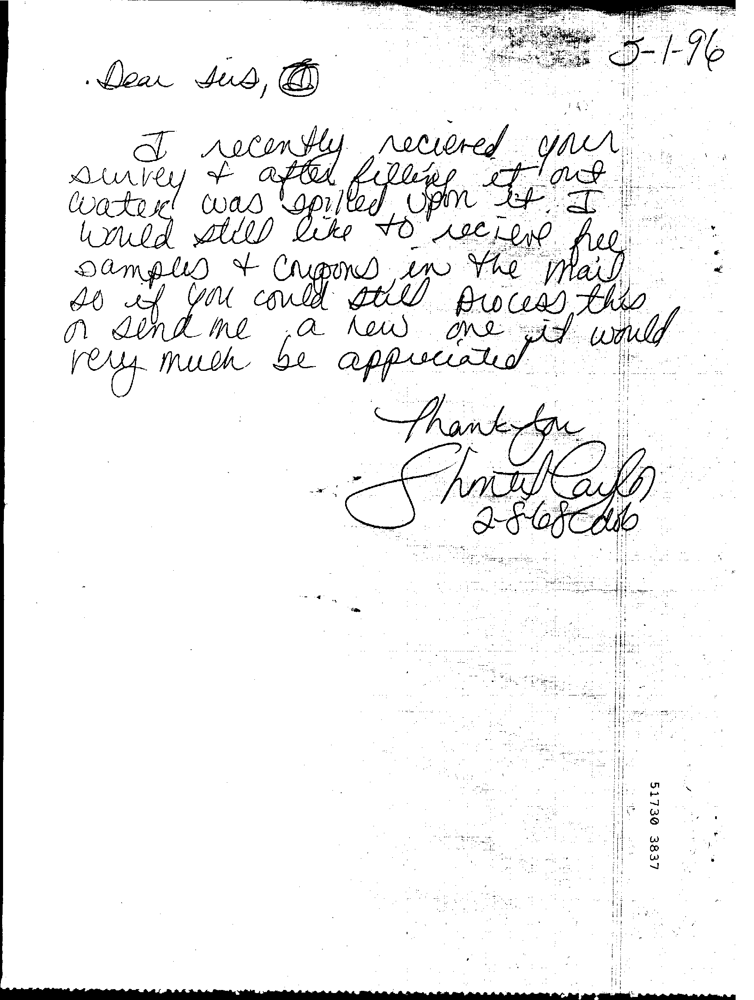 5-1-96
Dear Sirs,
I recently recieved your
survey + after filling it out
water was spilled upon it. I
would still like to recieve free
samples + coupons in the mail
so if you could still process this
or send me a new one it would
very much be appreciated
Thank You
2-8-68 dob
51730 3837